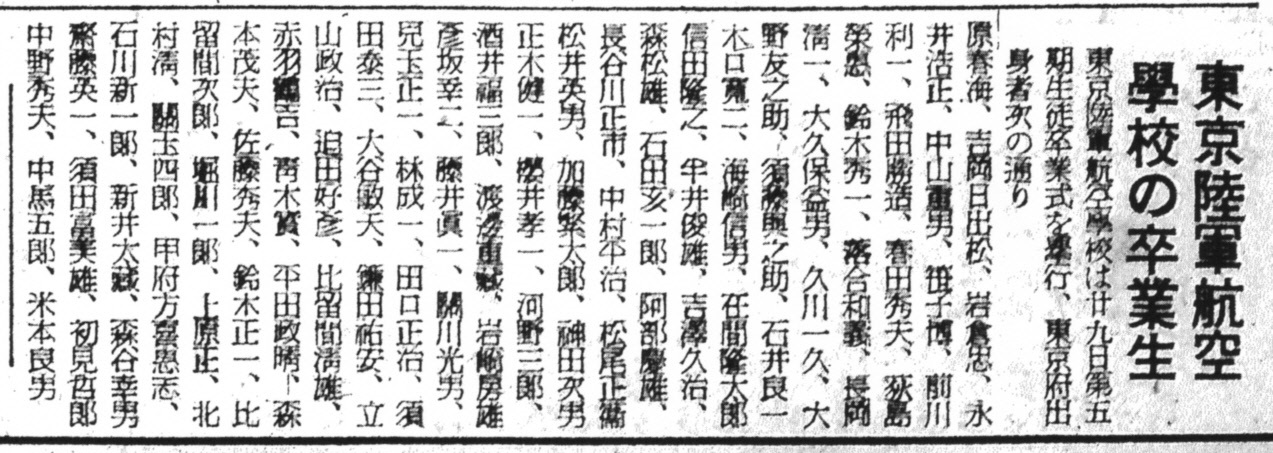 東京陸軍航空
學校の卒業生
東京陸軍航空學校は廿九日第五
期生徒卒業式を擧行、東京府出
身者次の通り
原春海、吉岡日出松、岩倉忠、永
井浩正、中山重男、笹子博、前川
利一、飛田勝造、春田秀夫、荻島
榮惠、鈴木秀一、落合和義、長岡
淸一、大久保益男、久川一久、大
野友之助、須藤與之助、石井良一
木口寬二、海崎信男、在間隆太郎
信田隆之、半井俊雄、吉澤久治、
森松雄、石田亥一郎、阿部慶雄、
長谷川正市、中村平治、松尾正滿
松井英男、加藤繁太郎、神田次男
正木健一、櫻井孝一、河野三郎、
酒井福三郎、渡邊重藏、岩崎房雄
彥坂幸二、藤井眞一、關川光男、
兒玉正一、林成一、田口正治、須
田泰三、大谷敏夫、鎌田祐安、立
山政治、迫田好彥、比留間淸雄、
赤羽鶴吉、靑木實、平田政晴、森
本茂夫、佐藤秀夫、鈴木正一、比
留間次郎、堀川一郎、上原正、北
村淸、關玉四郎、甲府方喜惠志、
石川新一郎、新井太藏、森谷幸男
齋藤英一、須田富美雄、初見哲郎
中野秀夫、中馬五郎、米本良男